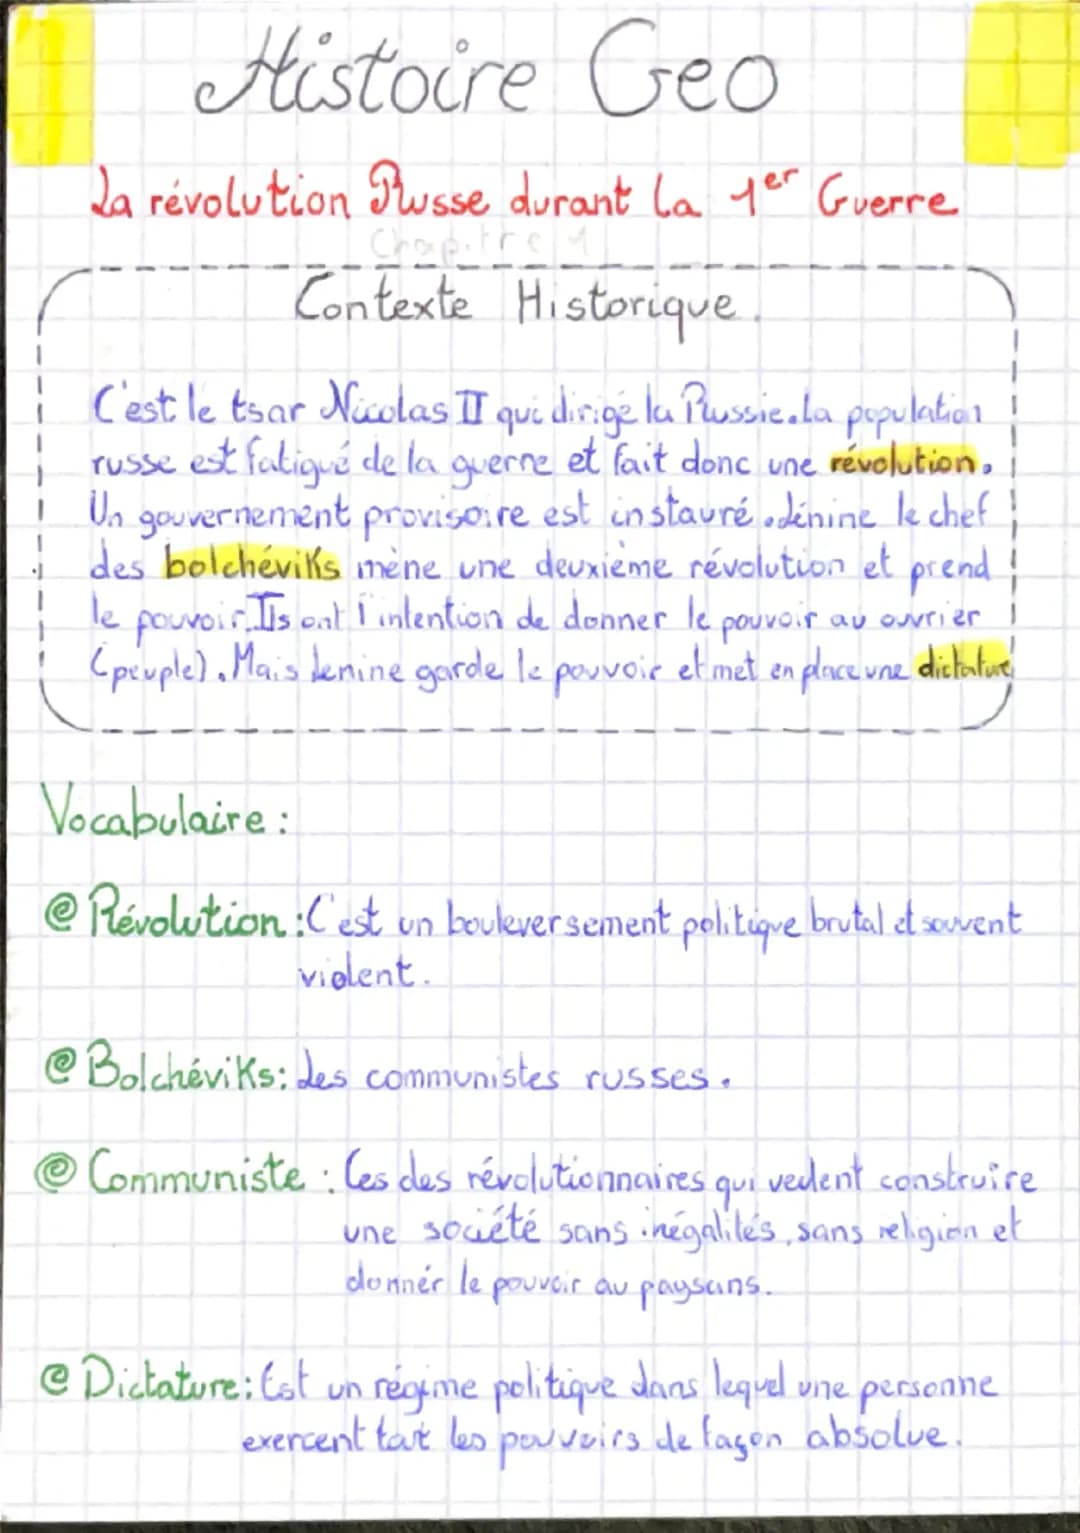 Histoire Geo
La révolution Russe durant la 1er Guerre
Chapitre 1
Contexte Historique.
C'est le tsar Nicolas II qui dirigé la Russie. La population
russe est fatigué de la guerre et fait donc une révolution.
Un gouvernement provisoire est instauré. Lénine le chef
des bolchéviks mène une deuxième révolution et prend
le pouvoir. Ils ont l'intention de donner le pouvoir au ouvrier
(peuple). Mais Lenine garde le pouvoir et met en place une dictature
Vocabulaire :
@ Révolution : C'est un bouleversement politique brutal et souvent
violent.
@ Bolchéviks : des communistes russes.
@ Communiste : Ces des révolutionnaires qui veulent construire
une société sans inégalités, sans religion et
donnér le pouvoir au paysans.
@ Dictature : Est un régime politique dans lequel une personne
exercent tout les pouvoirs de façon absolue.